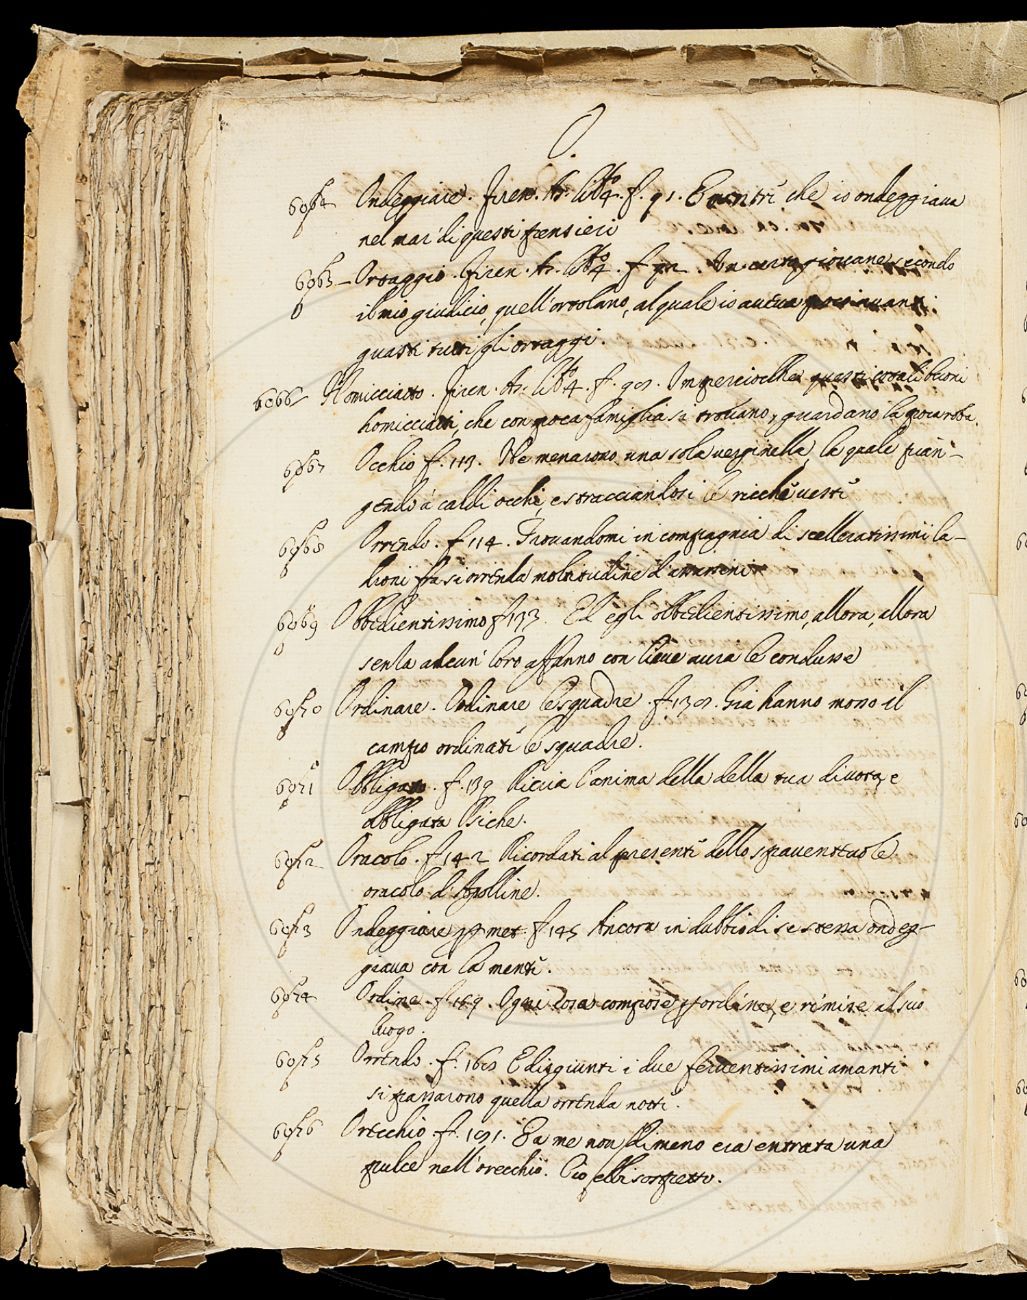 O.
6064 Ondeggiare. Firen. As. lib.º 4. f. 91. E mentre che io ondeggiava
nel mar di questi pensieri
6065 Ortaggio. Firen. As. lib.º 4. f. secondo
il mio giudicio, quell'ortolano, al quale io aveva poco innanzi
guasti tutti gli ortaggi.
6066 Homicciatto. Firen. As. lib.º 4. f. Impercioche questi cotali buoni
homicciatti, che con poca famiglia si trovano, guardano la poca roba.
6067 Occhio f. 113. Ne menarono una sola verginella, la quale pian-
gendo a caldi occhi, e stracciandosi le ricche vesti
6068 Orrendo. f. 114. Trovandomi in compagnia di scelleratissimi la-
droni fra si orrenda moltitudine d'
6069 Obbedientissimo f. 133. Ed egli obbedientissimo, allora, allora
senza alcun loro affanno con lieve aura le condusse
6070 Ordinare. Ordinare le squadre f. Gia hanno mosso il
campo ordinate le squadre.
6071 Obbligato. f. 139 Ricria l'anima della della tua divota, e
obbligata Psiche.
6072 Oracolo. f. 142 Ricordati al presente dello spaventevole
oracolo d'Apolline.
6073 Ondeggiare p met. f. 145 Ancora in dubbio di se stessa ondeg-
giava con la mente.
6074 Ordine. f. 159. Ogni cosa compose p ordine, e rimise al suo
luogo.
6075 Orrendo. f. E disgiunti i due ferventissimi amanti
si passarono quella orrenda notte.
6076 Orecchio. f. 191. E a me non dimeno era entrata una
pulce nell'orecchio. Cio ebbi sospetto.